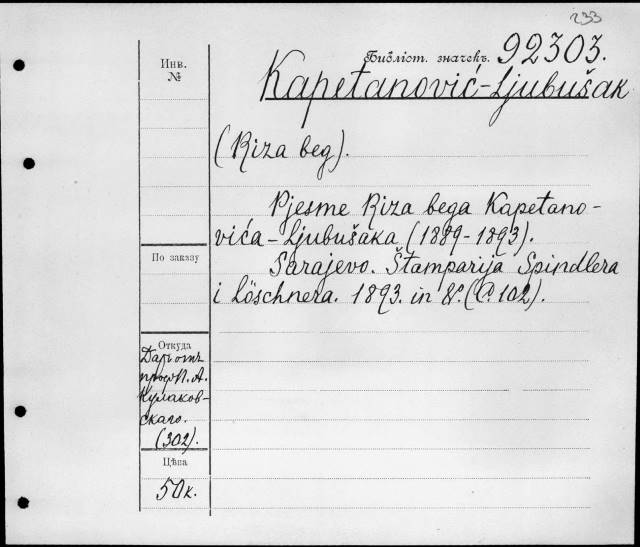 233
Инв.
№
Библіот. значекъ. 92303.
Kapetanović-Ljubušak
(Riza beg).
Pjesme Riza bega Kapetano-
vića-Ljubušaka (1889-1893).
Sarajevo. Štamparija Spindlera
i Löschnera. 1893. in 8º. (C. 102).
По заказу
Откуда
Даръ отъ
проф. П. А.
Кулаков-
скаго.
(302).
Цѣна
50 к.